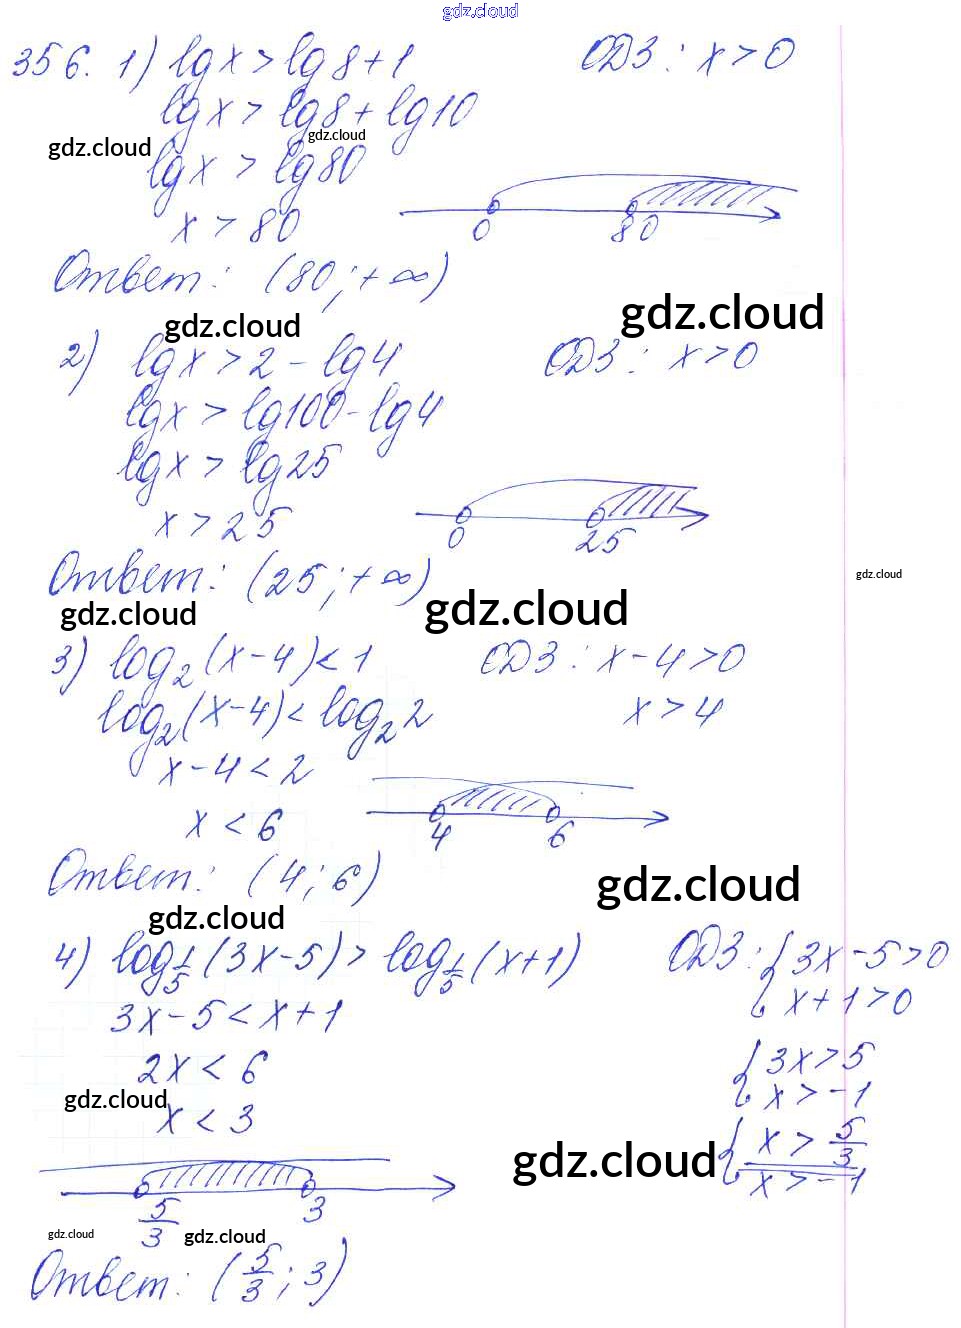 gdz.cloud
356. 1) lg x > lg 8 + 1 ОДЗ: x > 0
lg x > lg 8 + lg 10
gdz.cloud gdz.cloud
lg x > lg 80
x > 80
0 80
Ответ: (80; +∞)
gdz.cloud gdz.cloud
2) lg x > 2 - lg 4 ОДЗ: x > 0
lg x > lg 100 - lg 4
lg x > lg 25
x > 25
0 25
Ответ: (25; +∞) gdz.cloud
gdz.cloud gdz.cloud
3) log₂(x-4) < 1 ОДЗ: x-4 > 0
log₂(x-4) < log₂ 2 x > 4
x-4 < 2
x < 6
4 6
Ответ: (4; 6) gdz.cloud
gdz.cloud
4) log_{1/5}(3x-5) > log_{1/5}(x+1) ОДЗ: { 3x-5 > 0
x+1 > 0
3x-5 < x+1
2x < 6 { 3x > 5
gdz.cloud x > -1
x < 3 { x > 5/3
gdz.cloud x > -1
5/3 3
gdz.cloud gdz.cloud
Ответ: (5/3; 3)